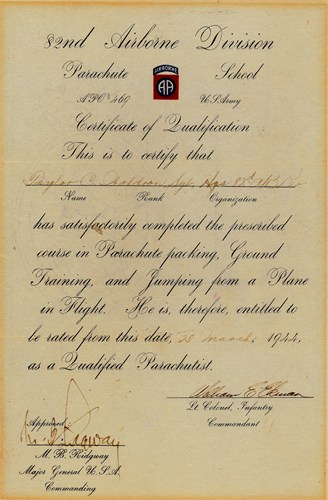 82nd Airborne Division
Parachute School
AIRBORNE
AA
APO 469 U.S. Army
Certificate of Qualification
This is to certify that
Sgt.
Name Rank Organization
has satisfactorily completed the prescribed
course in Parachute packing, Ground
Training, and Jumping from a Plane
in Flight. He is, therefore, entitled to
be rated from this date, 28 March 1944,
as a Qualified Parachutist.
Lt. Colonel, Infantry
Commandant
Approved:
M. B. Ridgway
M. B. Ridgway
Major General U.S.A.
Commanding